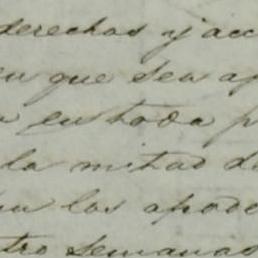 derechos y acc
en que sea ap
en toda p
la mitad d
los apode
tro semanas